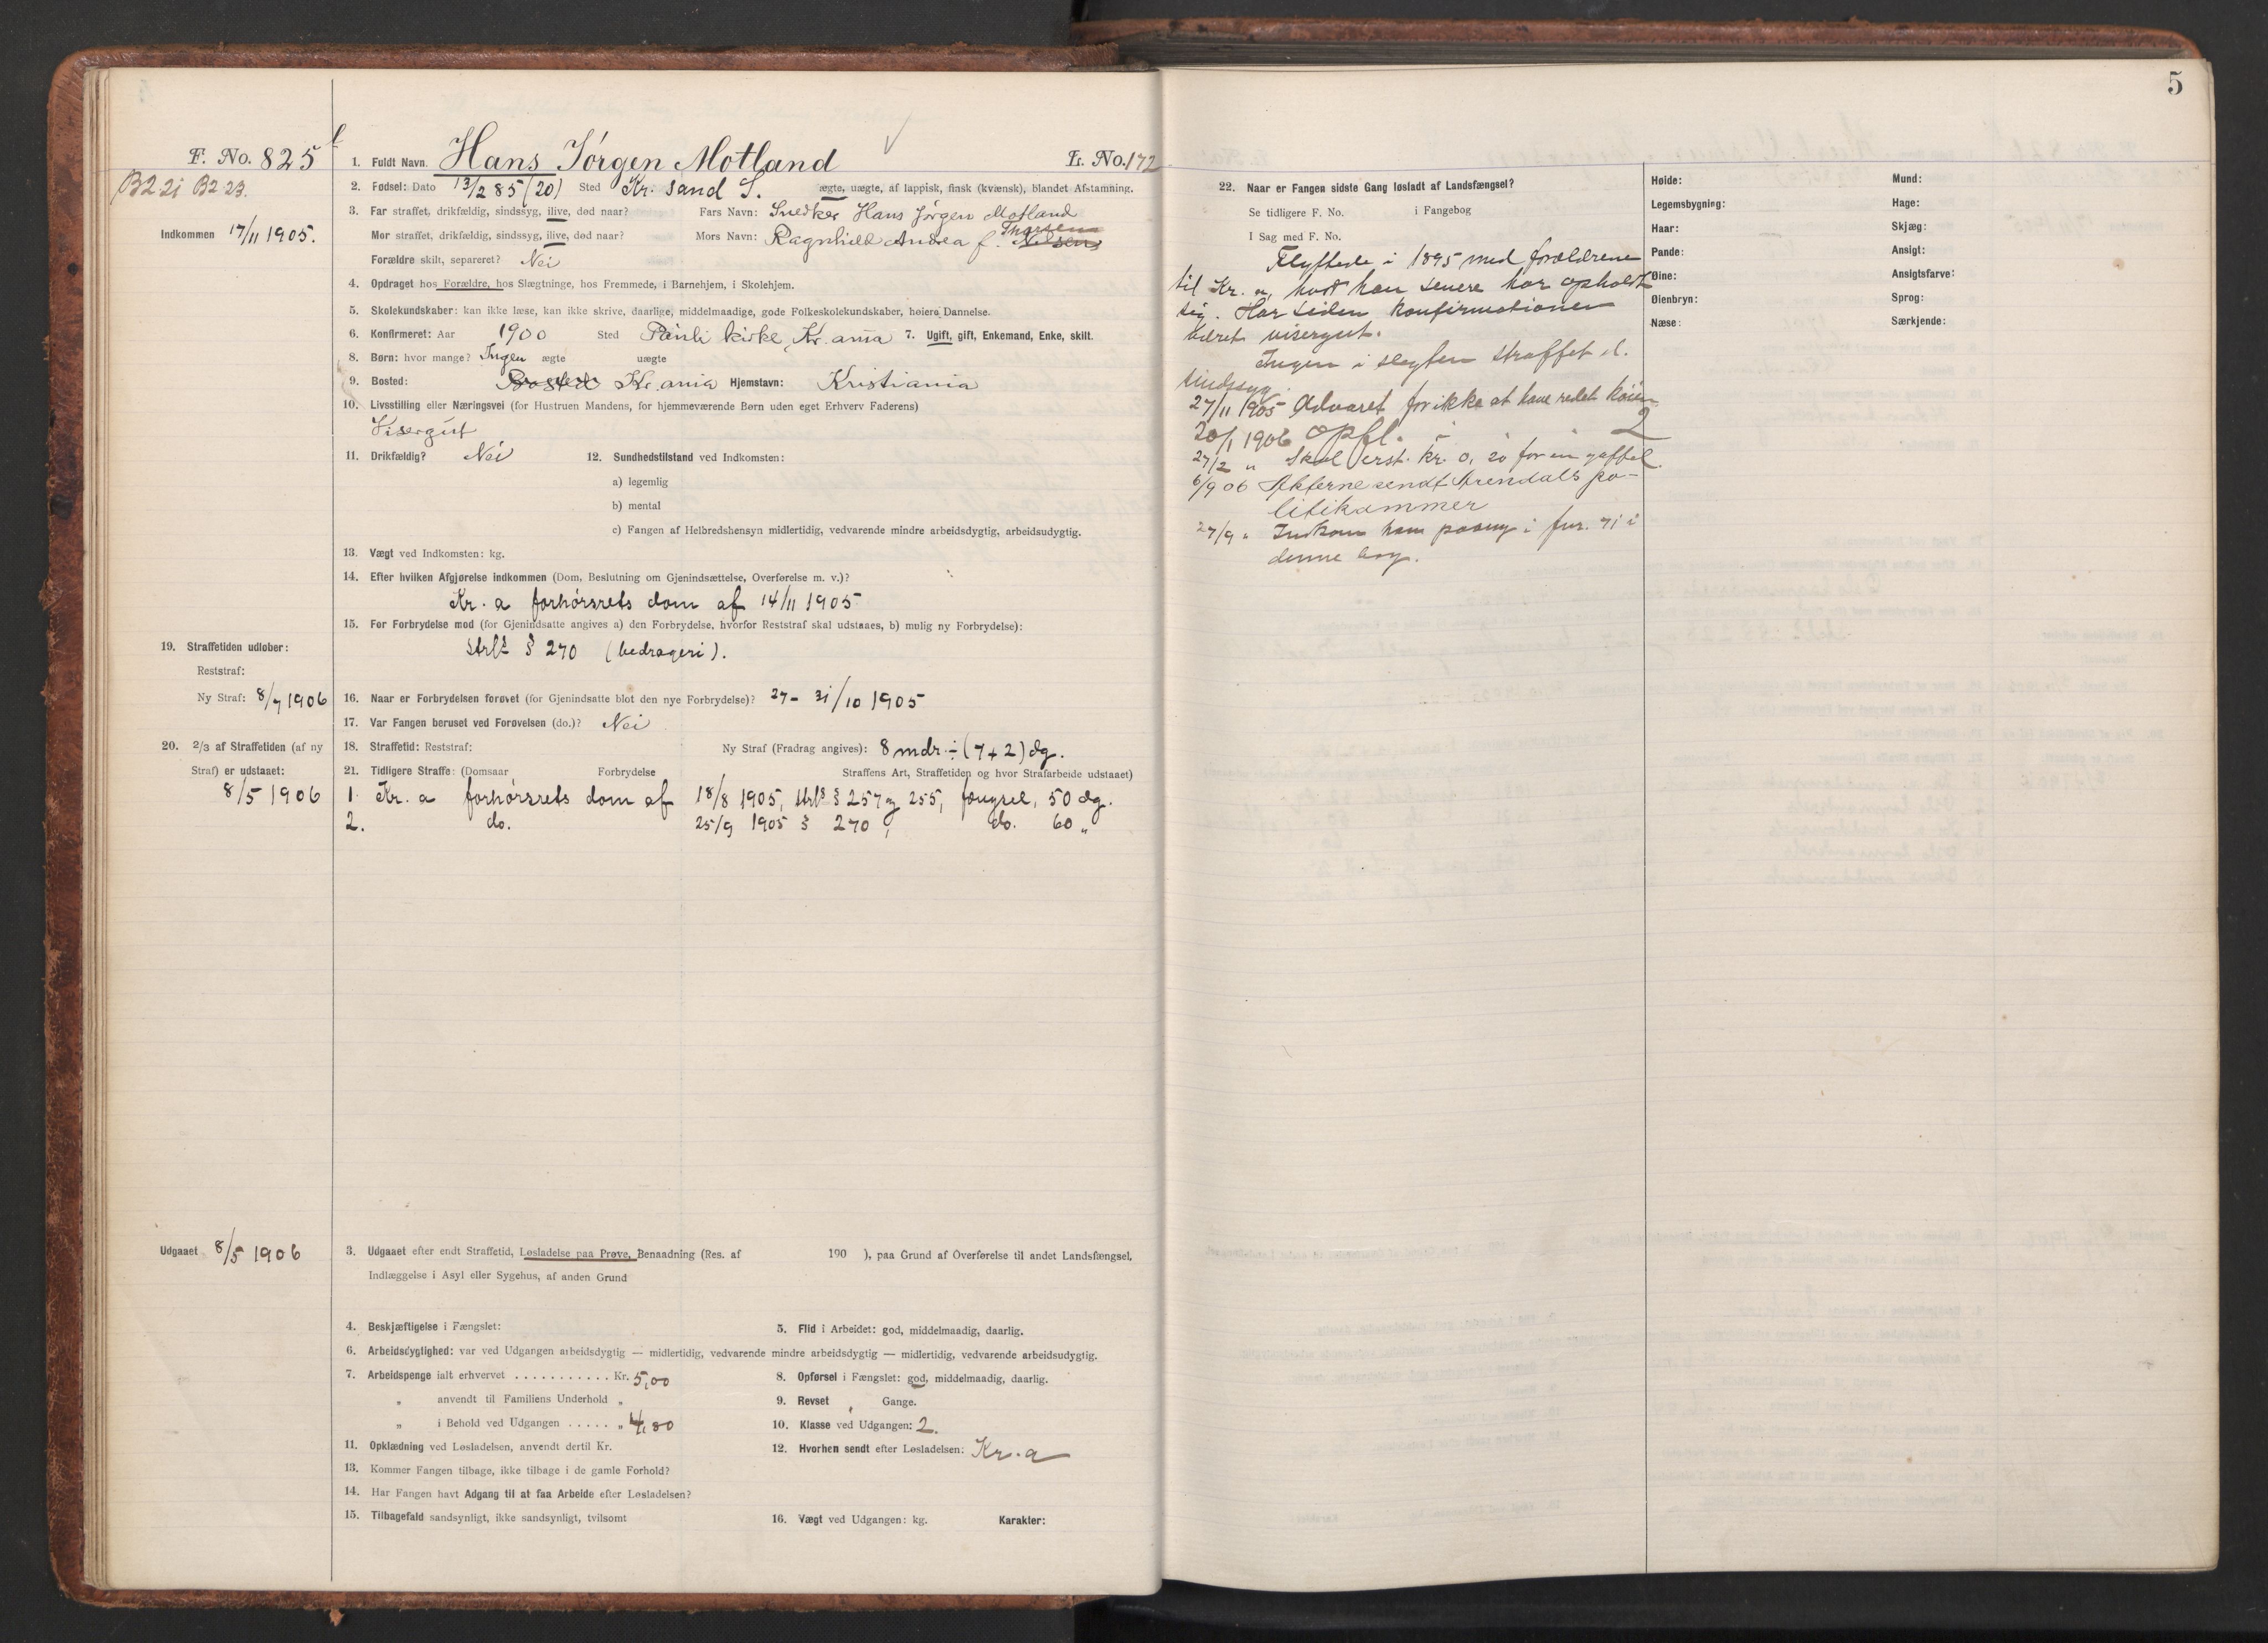 5
F. No. 825
1. Fuldt Navn. Hans Jörgen Motland L. No. 172
B2 21 B2 23.
2. Fødsel: Dato 13/2 85 (20) Sted Kr. sand S. ægte, uægte, af lappisk, finsk (kvænsk), blandet Afstamning.
Indkommen 17/11 1905.
3. Far straffet, drikfældig, sindssyg, ilive, død naar? Fars Navn: Snedker Hans Jörgen Motland
Thorsen
Mor straffet, drikfældig, sindssyg, ilive, død naar? Mors Navn: Ragnhild Andrea f. Nilsen
Forældre skilt, separeret? Nei
4. Opdraget hos Forældre, hos Slægtninge, hos Fremmede, i Barnehjem, i Skolehjem.
5. Skolekundskaber: kan ikke læse, kan ikke skrive, daarlige, middelmaadige, gode Folkeskolekundskaber, høiere Dannelse.
6. Konfirmeret: Aar 1900 Sted Pauli kirke, Kr. ania 7. Ugift, gift, Enkemand, Enke, skilt.
8. Børn: hvor mange? Ingen ægte uægte
9. Bosted: Kr. ania Hjemstavn: Kristiania
10. Livsstilling eller Næringsvei (for Hustruen Mandens, for hjemmeværende Børn uden eget Erhverv Faderens)
Visergut
11. Drikfældig? Nei 12. Sundhedstilstand ved Indkomsten:
a) legemlig
b) mental
c) Fangen af Helbredshensyn midlertidig, vedvarende mindre arbeidsdygtig, arbeidsudygtig.
13. Vægt ved Indkomsten: kg.
14. Efter hvilken Afgjørelse indkommen (Dom, Beslutning om Gjenindsættelse, Overførelse m. v.)?
Kr. a forhörsrets dom af 14/11 1905
15. For Forbrydelse mod (for Gjenindsatte angives a) den Forbrydelse, hvorfor Reststraf skal udstaaes, b) mulig ny Forbrydelse):
Strfl § 270 (bedrageri).
19. Straffetiden udløber:
Reststraf:
Ny Straf: 8/7 1906
16. Naar er Forbrydelsen forøvet (for Gjenindsatte blot den nye Forbrydelse)? 27 - 31/10 1905
17. Var Fangen beruset ved Forøvelsen (do.)? Nei
20. 2/3 af Straffetiden (af ny
Straf) er udstaaet:
8/5 1906
18. Straffetid: Reststraf: Ny Straf (Fradrag angives): 8 mdr. ÷ (7 + 2) dg.
21. Tidligere Straffe: (Domsaar Forbrydelse Straffens Art, Straffetiden og hvor Strafarbeide udstaaet)
1. Kr. a forhörsrets dom af 18/8 1905, strfl § 257 og 255, fængsel, 50 dg.
2. do. 25/9 1905 § 270, do. 60 "
Udgaaet 8/5 1906
3. Udgaaet efter endt Straffetid, Løsladelse paa Prøve, Benaadning (Res. af 190 ), paa Grund af Overførelse til andet Landsfængsel,
Indlæggelse i Asyl eller Sygehus, af anden Grund
4. Beskjæftigelse i Fængslet: 5. Flid i Arbeidet: god, middelmaadig, daarlig.
6. Arbeidsdygtighed: var ved Udgangen arbeidsdygtig — midlertidig, vedvarende mindre arbeidsdygtig — midlertidig, vedvarende arbeidsudygtig.
7. Arbeidspenge ialt erhvervet . . . . . . . . . . . Kr. 5,00 8. Opførsel i Fængslet: god, middelmaadig, daarlig.
" anvendt til Familiens Underhold " 9. Revset Gange.
" i Behold ved Udgangen . . . . . " 4,80 10. Klasse ved Udgangen: 2.
11. Opklædning ved Løsladelsen, anvendt dertil Kr. 12. Hvorhen sendt efter Løsladelsen: Kr. a
13. Kommer Fangen tilbage, ikke tilbage i de gamle Forhold?
14. Har Fangen havt Adgang til at faa Arbeide efter Løsladelsen?
15. Tilbagefald sandsynligt, ikke sandsynligt, tvilsomt 16. Vægt ved Udgangen: kg. Karakter:
22. Naar er Fangen sidste Gang løsladt af Landsfængsel?
Se tidligere F. No. i Fangebog
I Sag med F. No.
Flyttede i 1895 med forældrene
til Kr. a, hvor han senere har opholdt
sig. Har siden konfirmationen
været visergut.
Ingen i slegten straffet el.
sindssyg.
27/11 1905 Advaret for ikke at have redet köien
20/1 1906 opfl. i 2
27/2 " Skal erst. kr. 0,20 for en gaffel.
6/9 06 Akterne sendt Arendals po-
litikammer
27/9 " Indkom ham paany i fnr. 71 i
denne bog.
Høide: Mund:
Legemsbygning: Hage:
Haar: Skjæg:
Pande: Ansigt:
Øine: Ansigtsfarve:
Øienbryn: Sprog:
Næse: Særkjende: